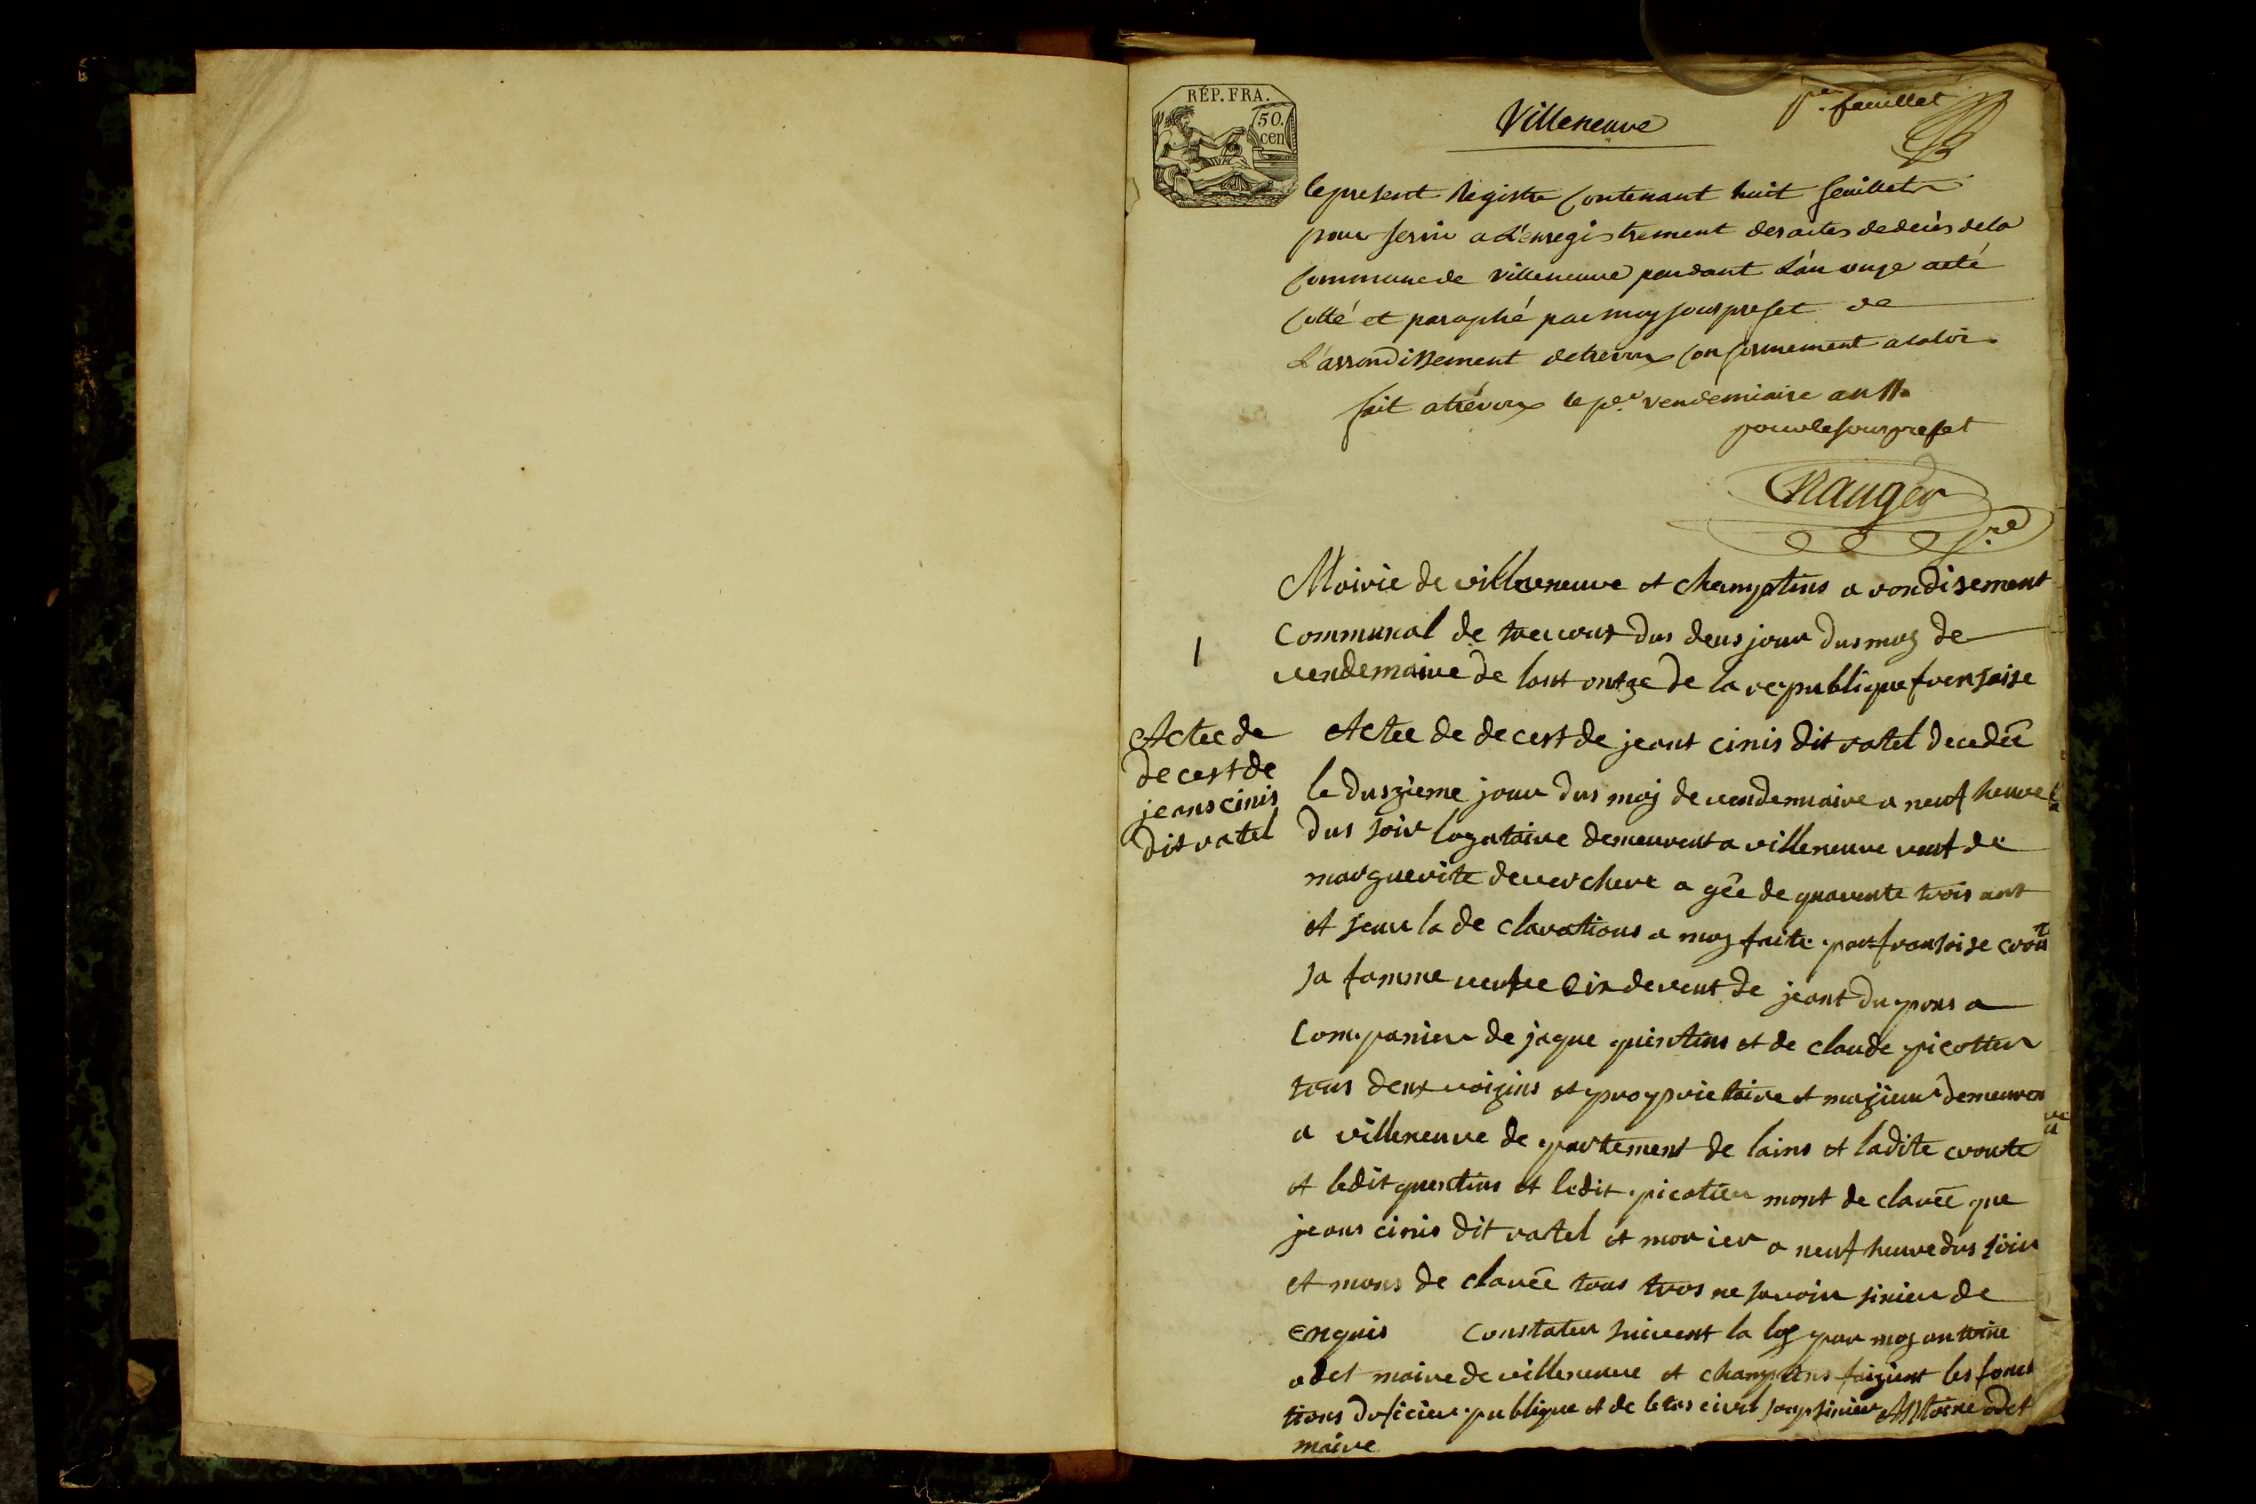 RÉP. FRA.
50.
cen
Villeneuve
per feuillet
le present Registre Contenant huit feuillets
pour servir a L'enregistrement des actes de deces de la
Commune de villeneuve pendant L'an onze a eté
Cotté et paraphé par moy sous prefet de
L'arrondissement de trevoux Conformement a la loi.
fait a trévoux le per vendemiaire an 11.
pour le sous prefet
Mairie de villeneuve et champtins a rondisement
Communal de trevout dus deus jour dus moy de
1
vendemaire de lant ontze de la republique frensaise
Actee de
decest de
jeans cinis
dit ratel
Actee de decest de jeant cinis dit ratel decedée
le duszieme jour dus moy de vendemaire a neuf heure
dus soir logataire demeurent a villeneuve veuf de
marguerite deverchere a gée de quarente trois ant
et seur la de clarations a moy faite par fransoise crout
sa famme veufve cin devent de jeant dupons a
Companier de jaque quentins et de claude picottier
tous deux voizins et proprietaire et majieur demeuren
a villeneuve de partement de lains et ladite croute
et ledit quentins et ledit picotier mont de clarée que
jeans cinis dit ratel et mor ier a neuf heure dus soir
et mons de clarée tous tros ne savoir sinier de
enquis Constater suivent la loy par moy antoine
odet maire de villeneuve et champtins faizient les fonc
tions duficier publique et de letas civil soupsinier Antoine odet
maire